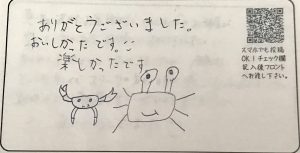 ありがとうございました。
おいしかったです。
楽しかったです
スマホでも投稿
OK!チェック欄
記入後フロント
へお渡し下さい。